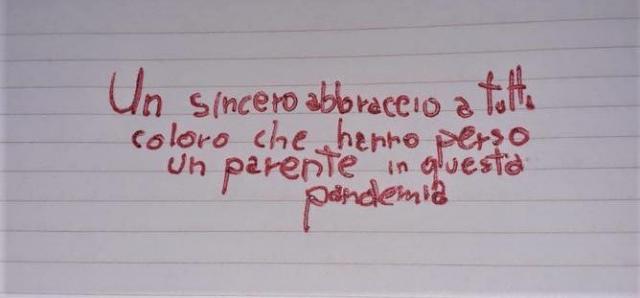 Un sincero abbraccio a tutti
coloro che hanno perso
un parente in questa
pandemia